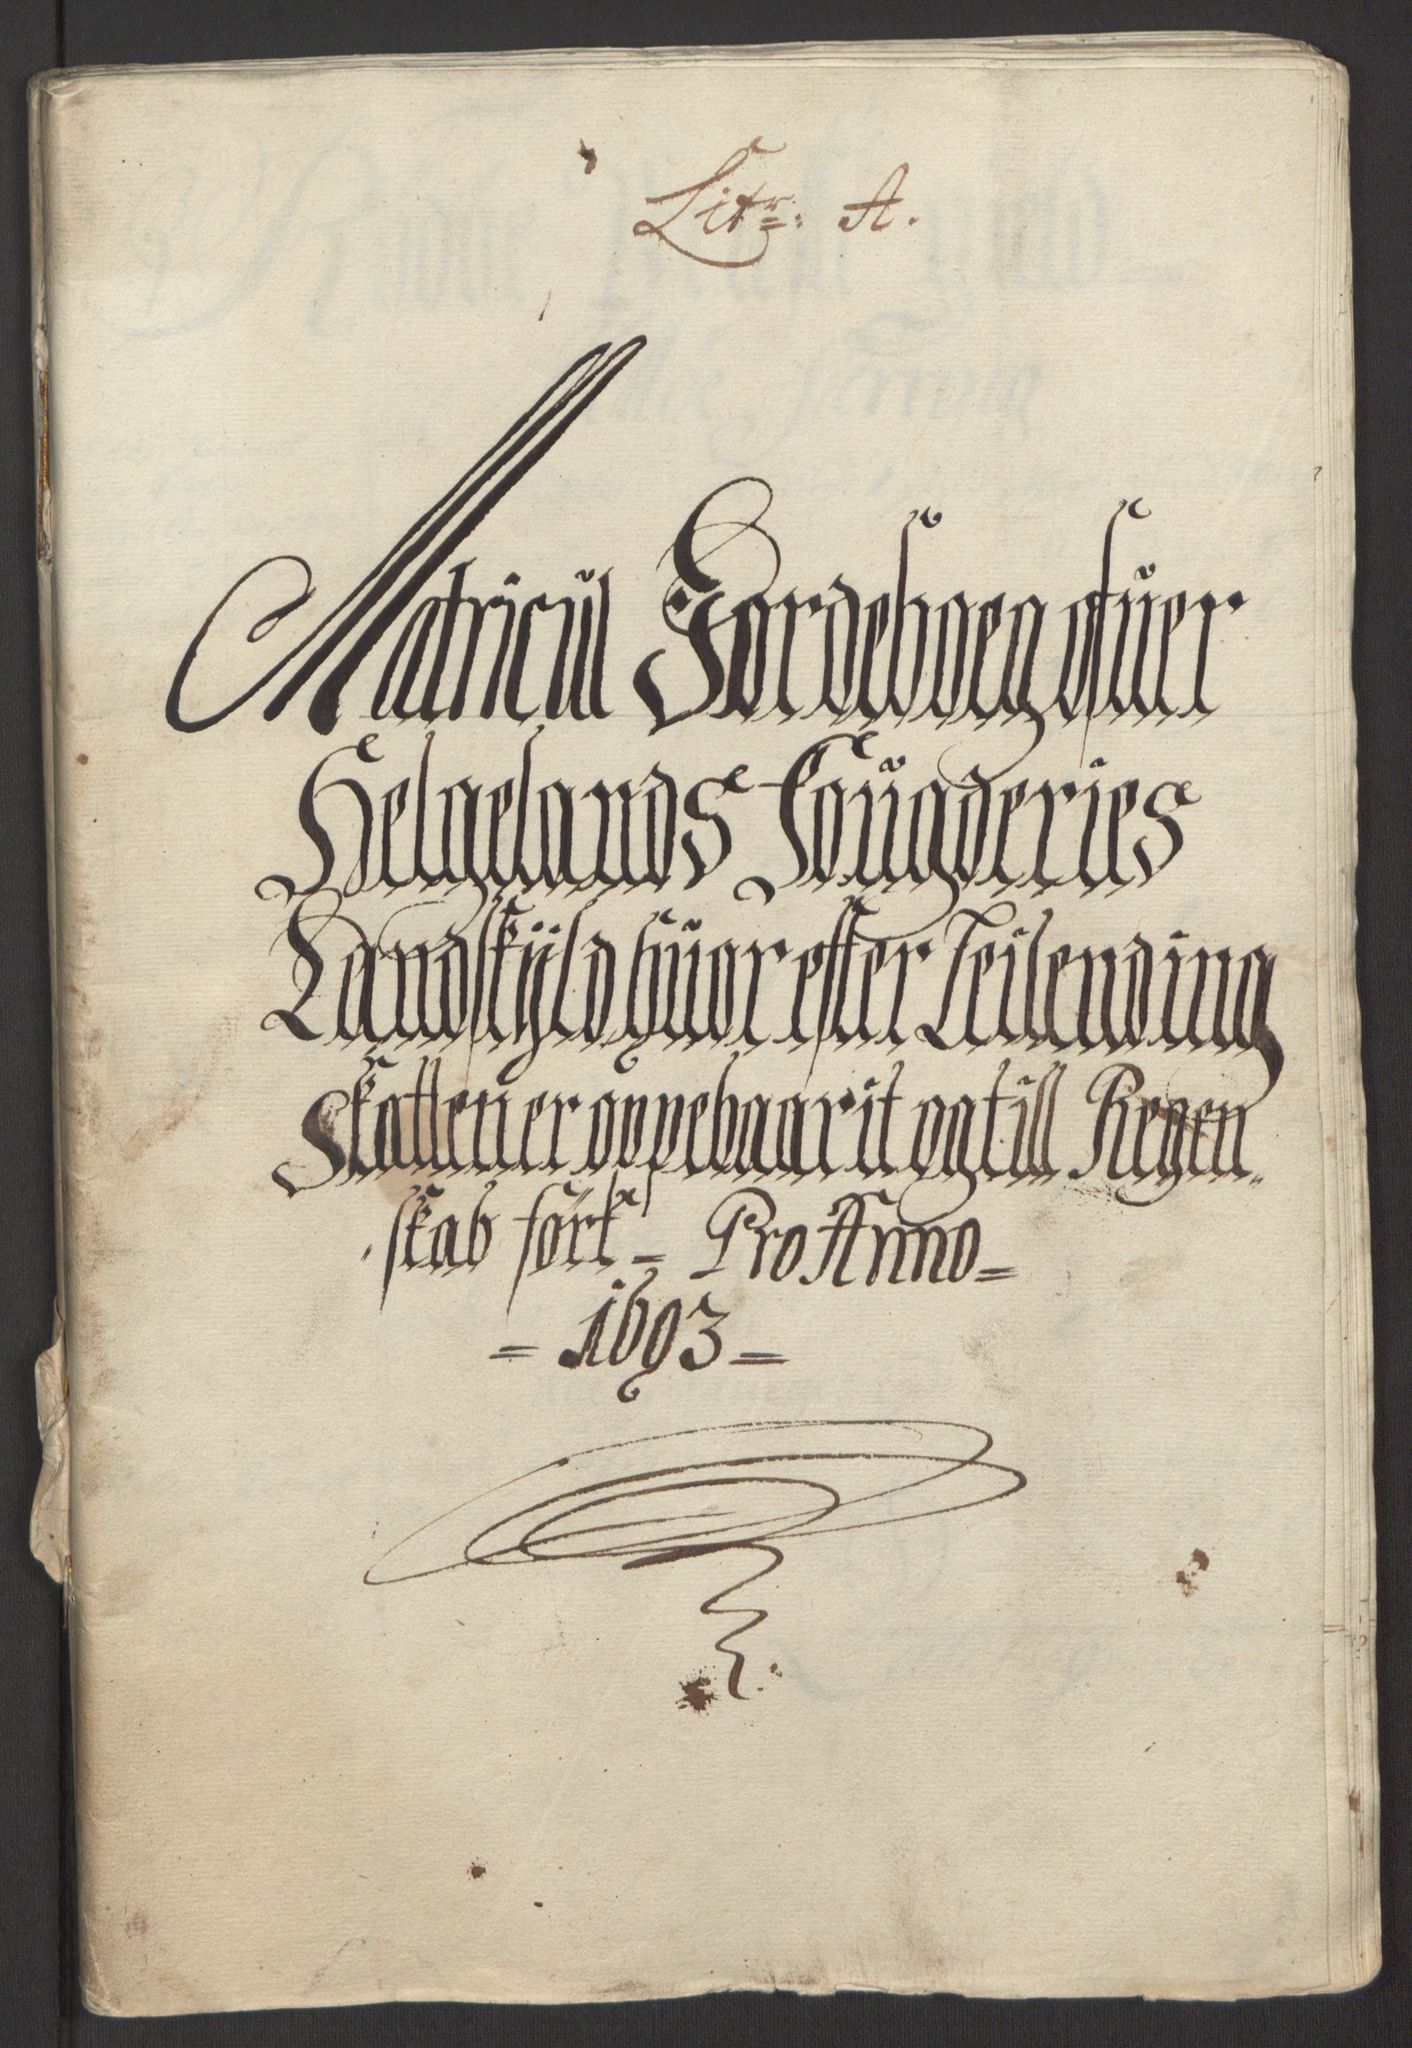 Litr: A.
Matricul Jordeboeg ofuer
Helgelands Fougderies
Landskyld huor effter Leilending
Skatten er oppebaarit og till Regen
skab fört = Pro Anno =
= 1693 =